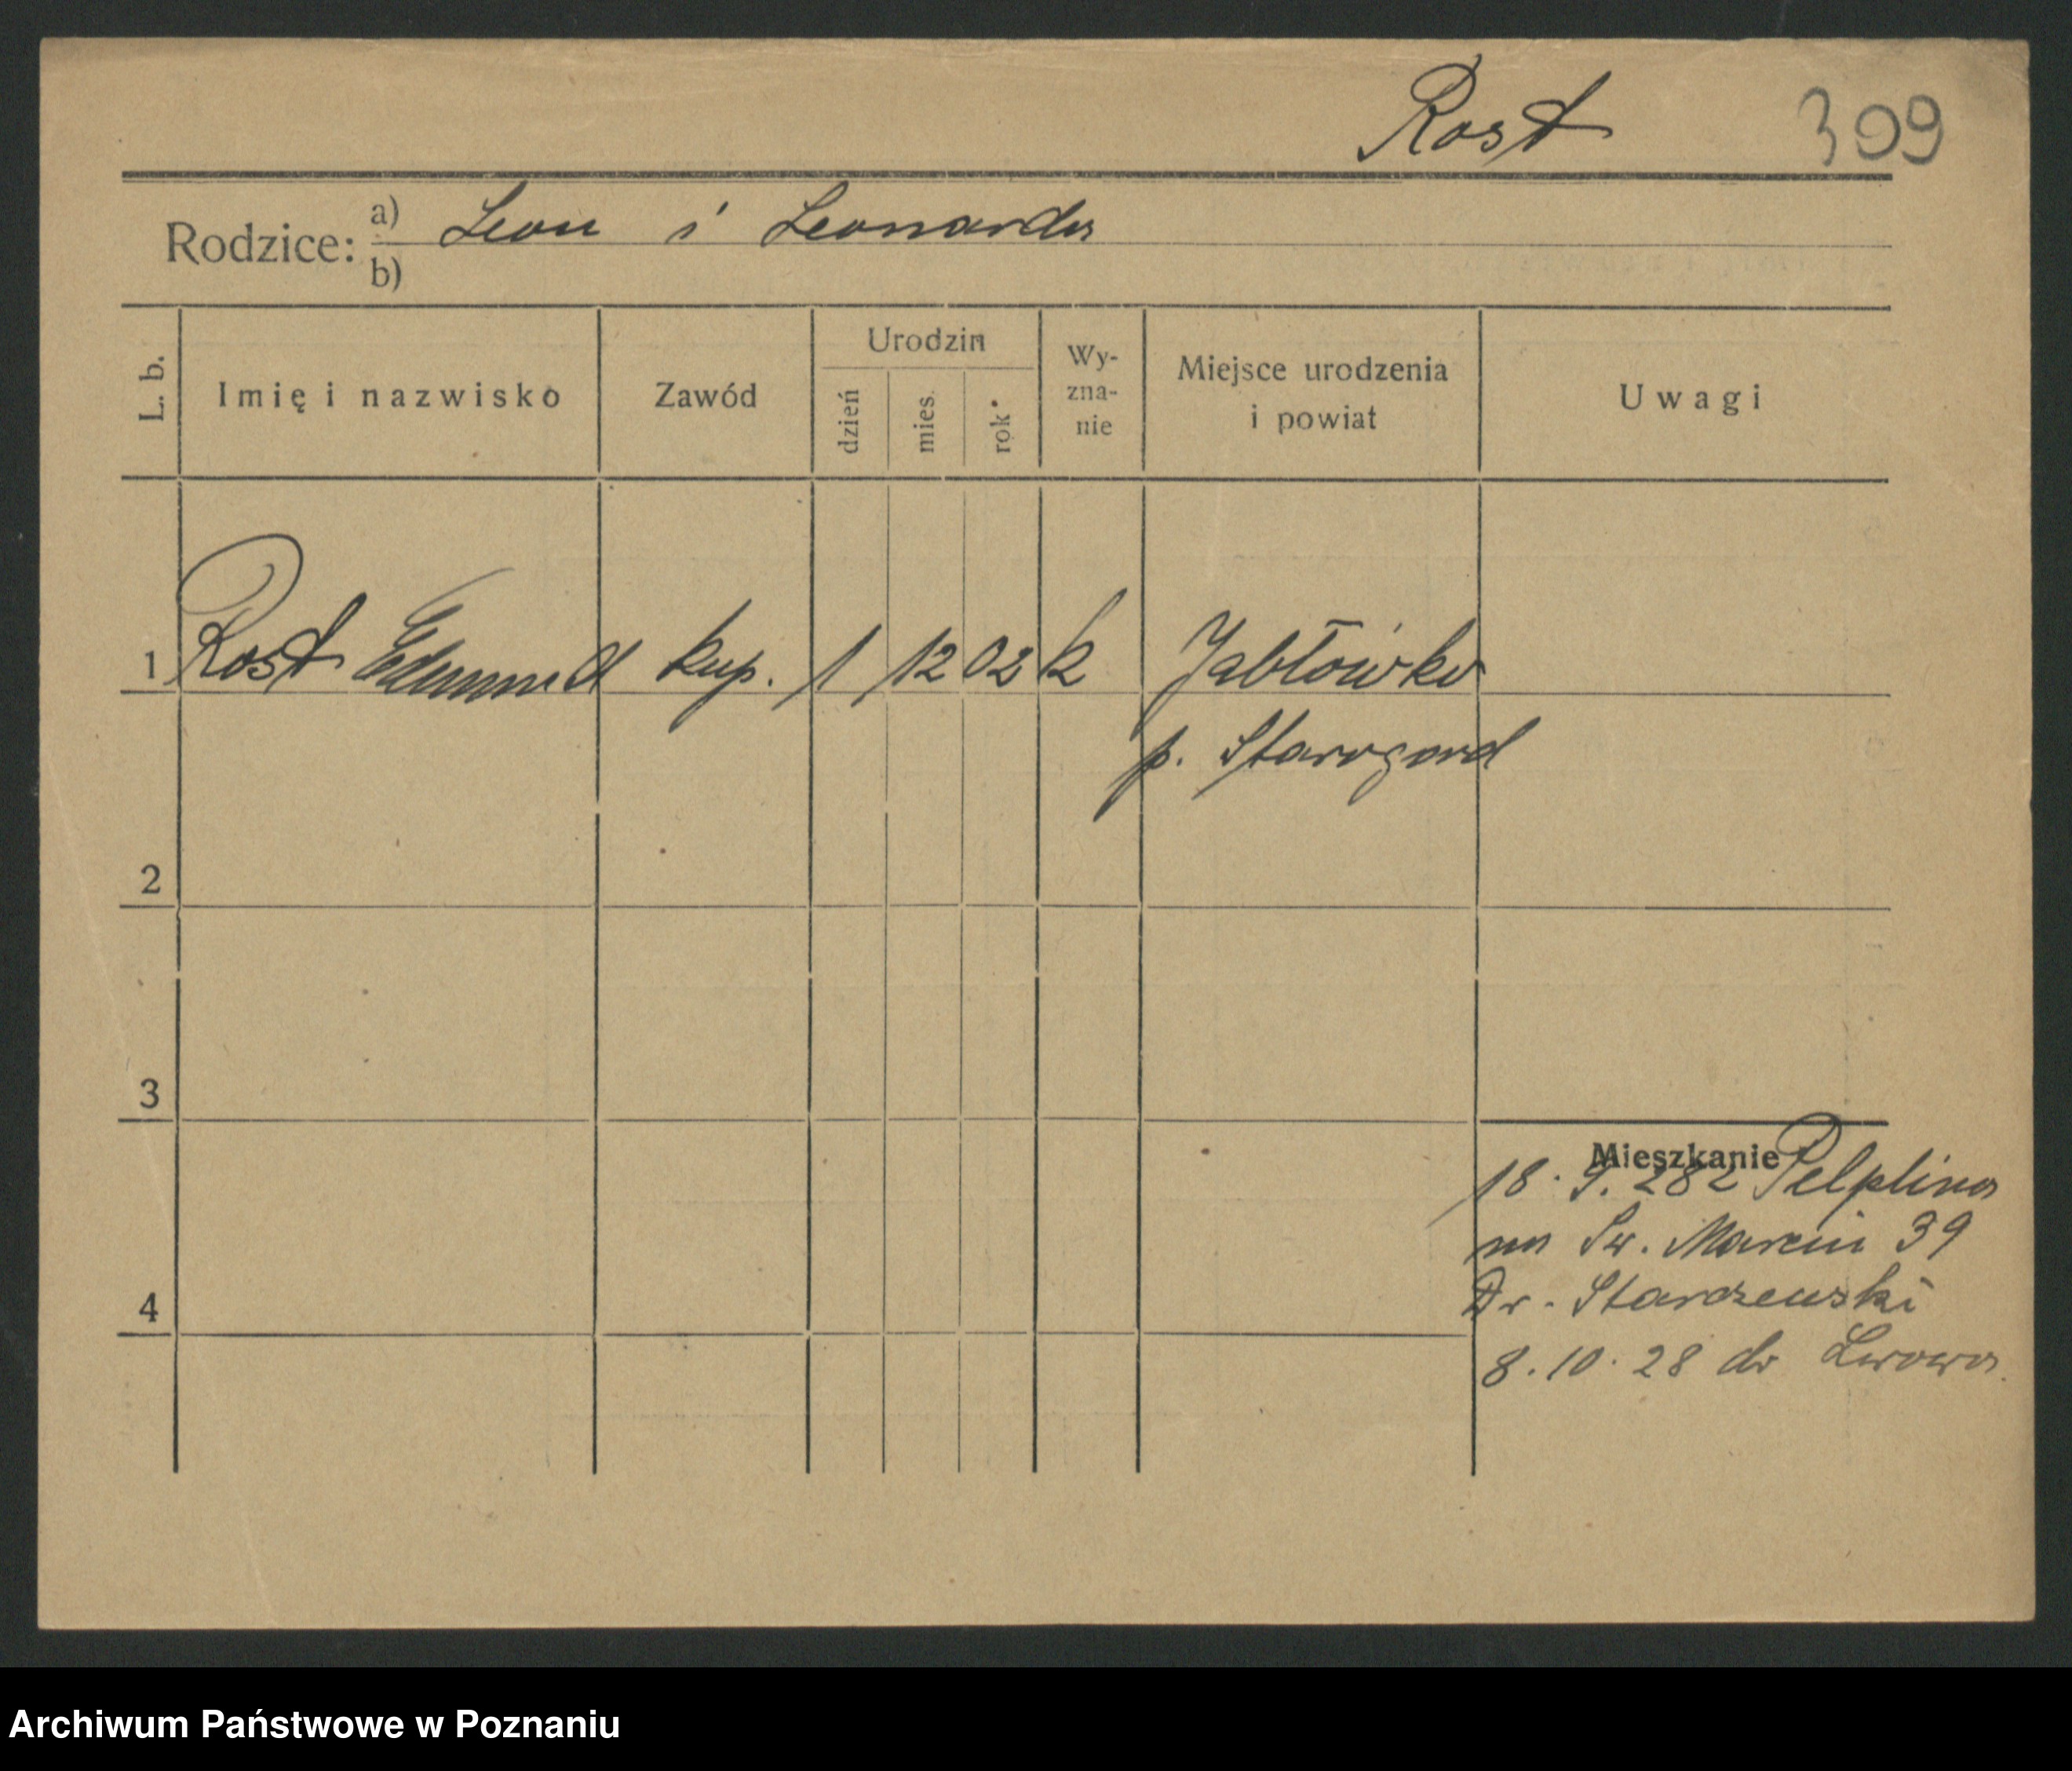 Rost 309
Rodzice: a) Leon i Leonarda
b)
L. b. Imię i nazwisko Zawód Urodzin dzień mies. rok Wy-zna-nie Miejsce urodzenia i powiat Uwagi
1 Rost Edmund kup. 1 12 02 k Jabłówko
p. Starogard
2
3
Mieszkanie
18. 9. 28 z Pelplina
na Św. Marcin 39
4 Dr. Starczewski
8. 10. 28 do Lwowa
Archiwum Państwowe w Poznaniu